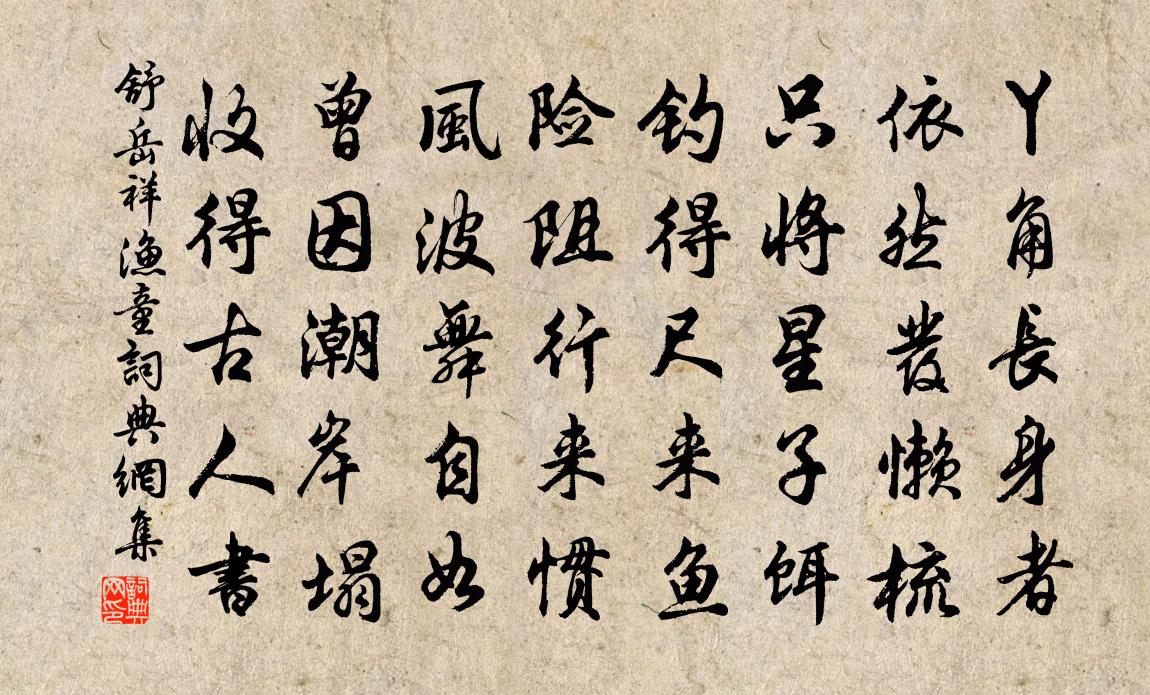 丫角長身者
依然發懶梳
只將星子餌
钓得尺来鱼
险阻行来慣
風波舞自如
曾因潮岸塌
收得古人書
舒岳祥漁童詞典網集
詞典網印